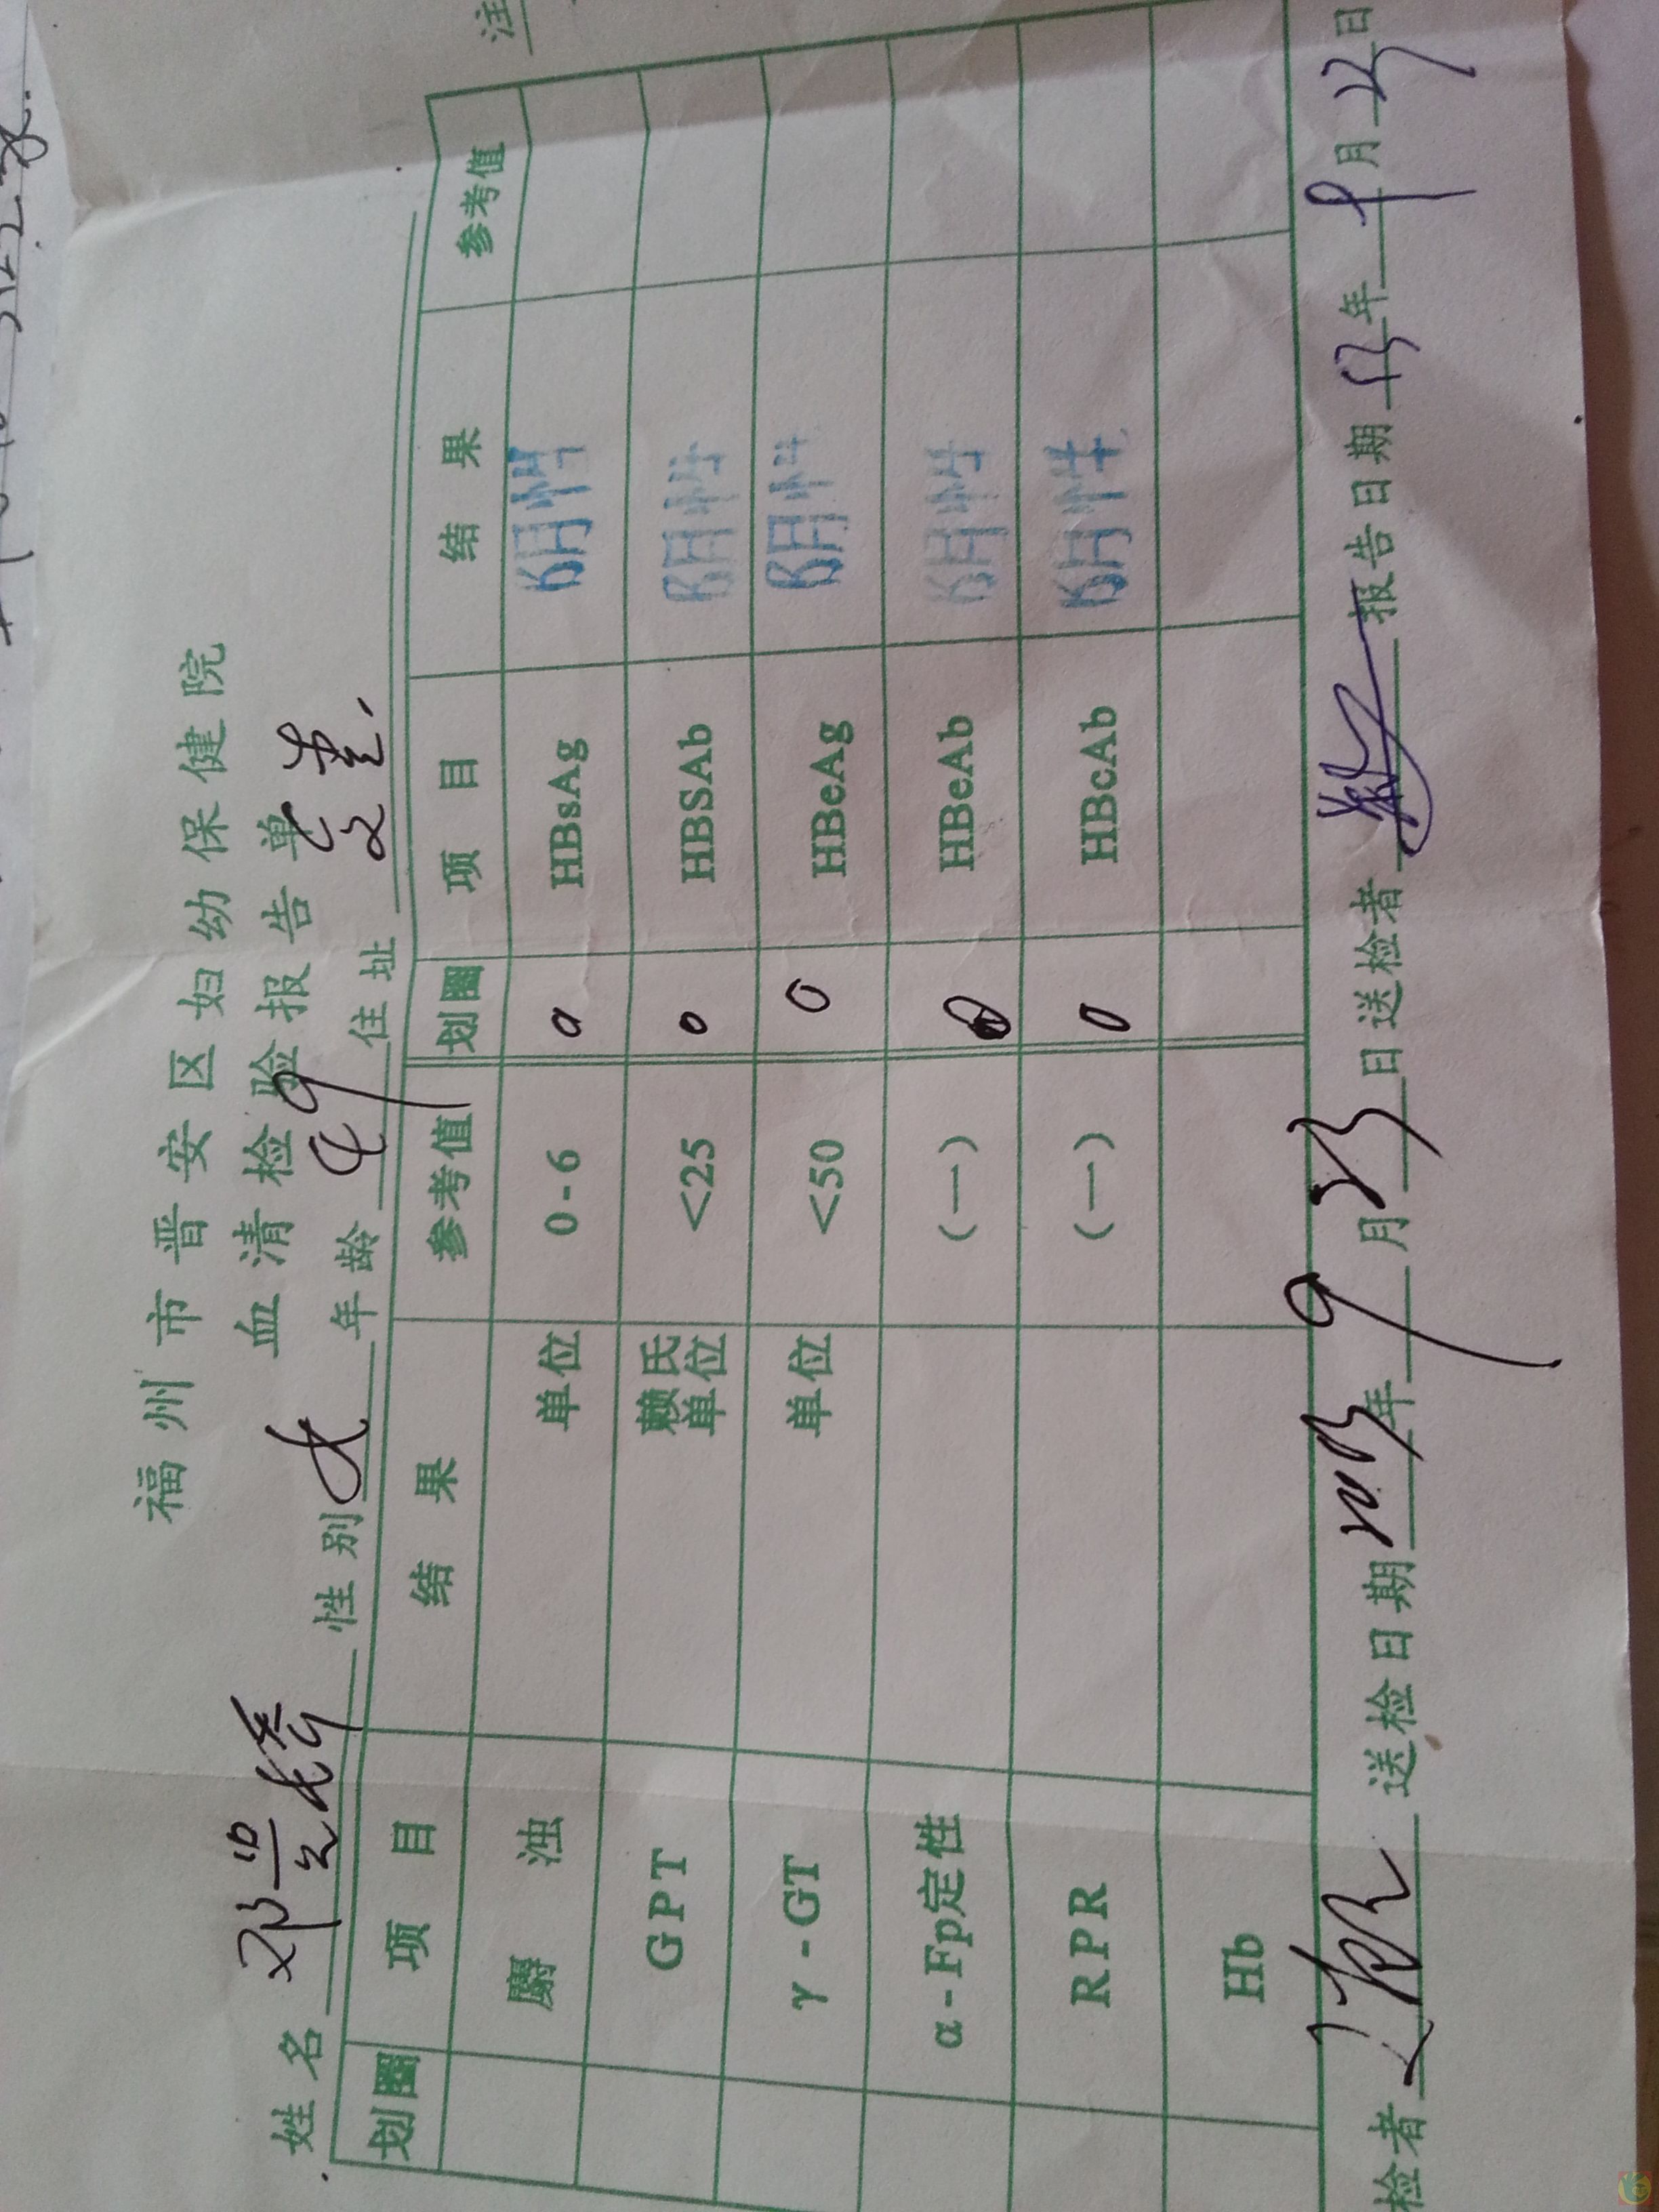 福州市晋安区妇幼保健院
血清检验报告单
姓名 性别 女 年龄 49 住址
划圈 项目 结果 参考值 划圈 项目 结果 参考值
麝浊 单位 0-6 HBsAg 阴性
GPT 赖氏单位 <25 HBSAb 阴性
γ-GT 单位 <50 HBeAg 阴性
α-Fp定性 (一) HBeAb 阴性
RPR (一) HBcAb 阴性
Hb
检者 送检日期 2013年9月23日 送检者 报告日期 13年9月23日
注